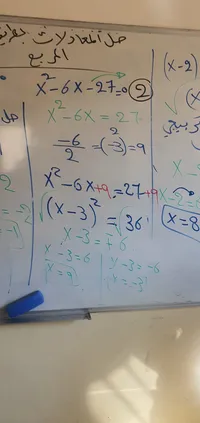 حل المعادلات بطريقة
المربع
x² - 6x - 27 = 0 (2)
x² - 6x = 27
-6/2 = (-3)² = 9
x² - 6x + 9 = 27 + 9
√(x - 3)² = √36
x - 3 = ± 6
x - 3 = 6
x = 9
x - 3 = -6
x = -3
(x - 2)
x = 8